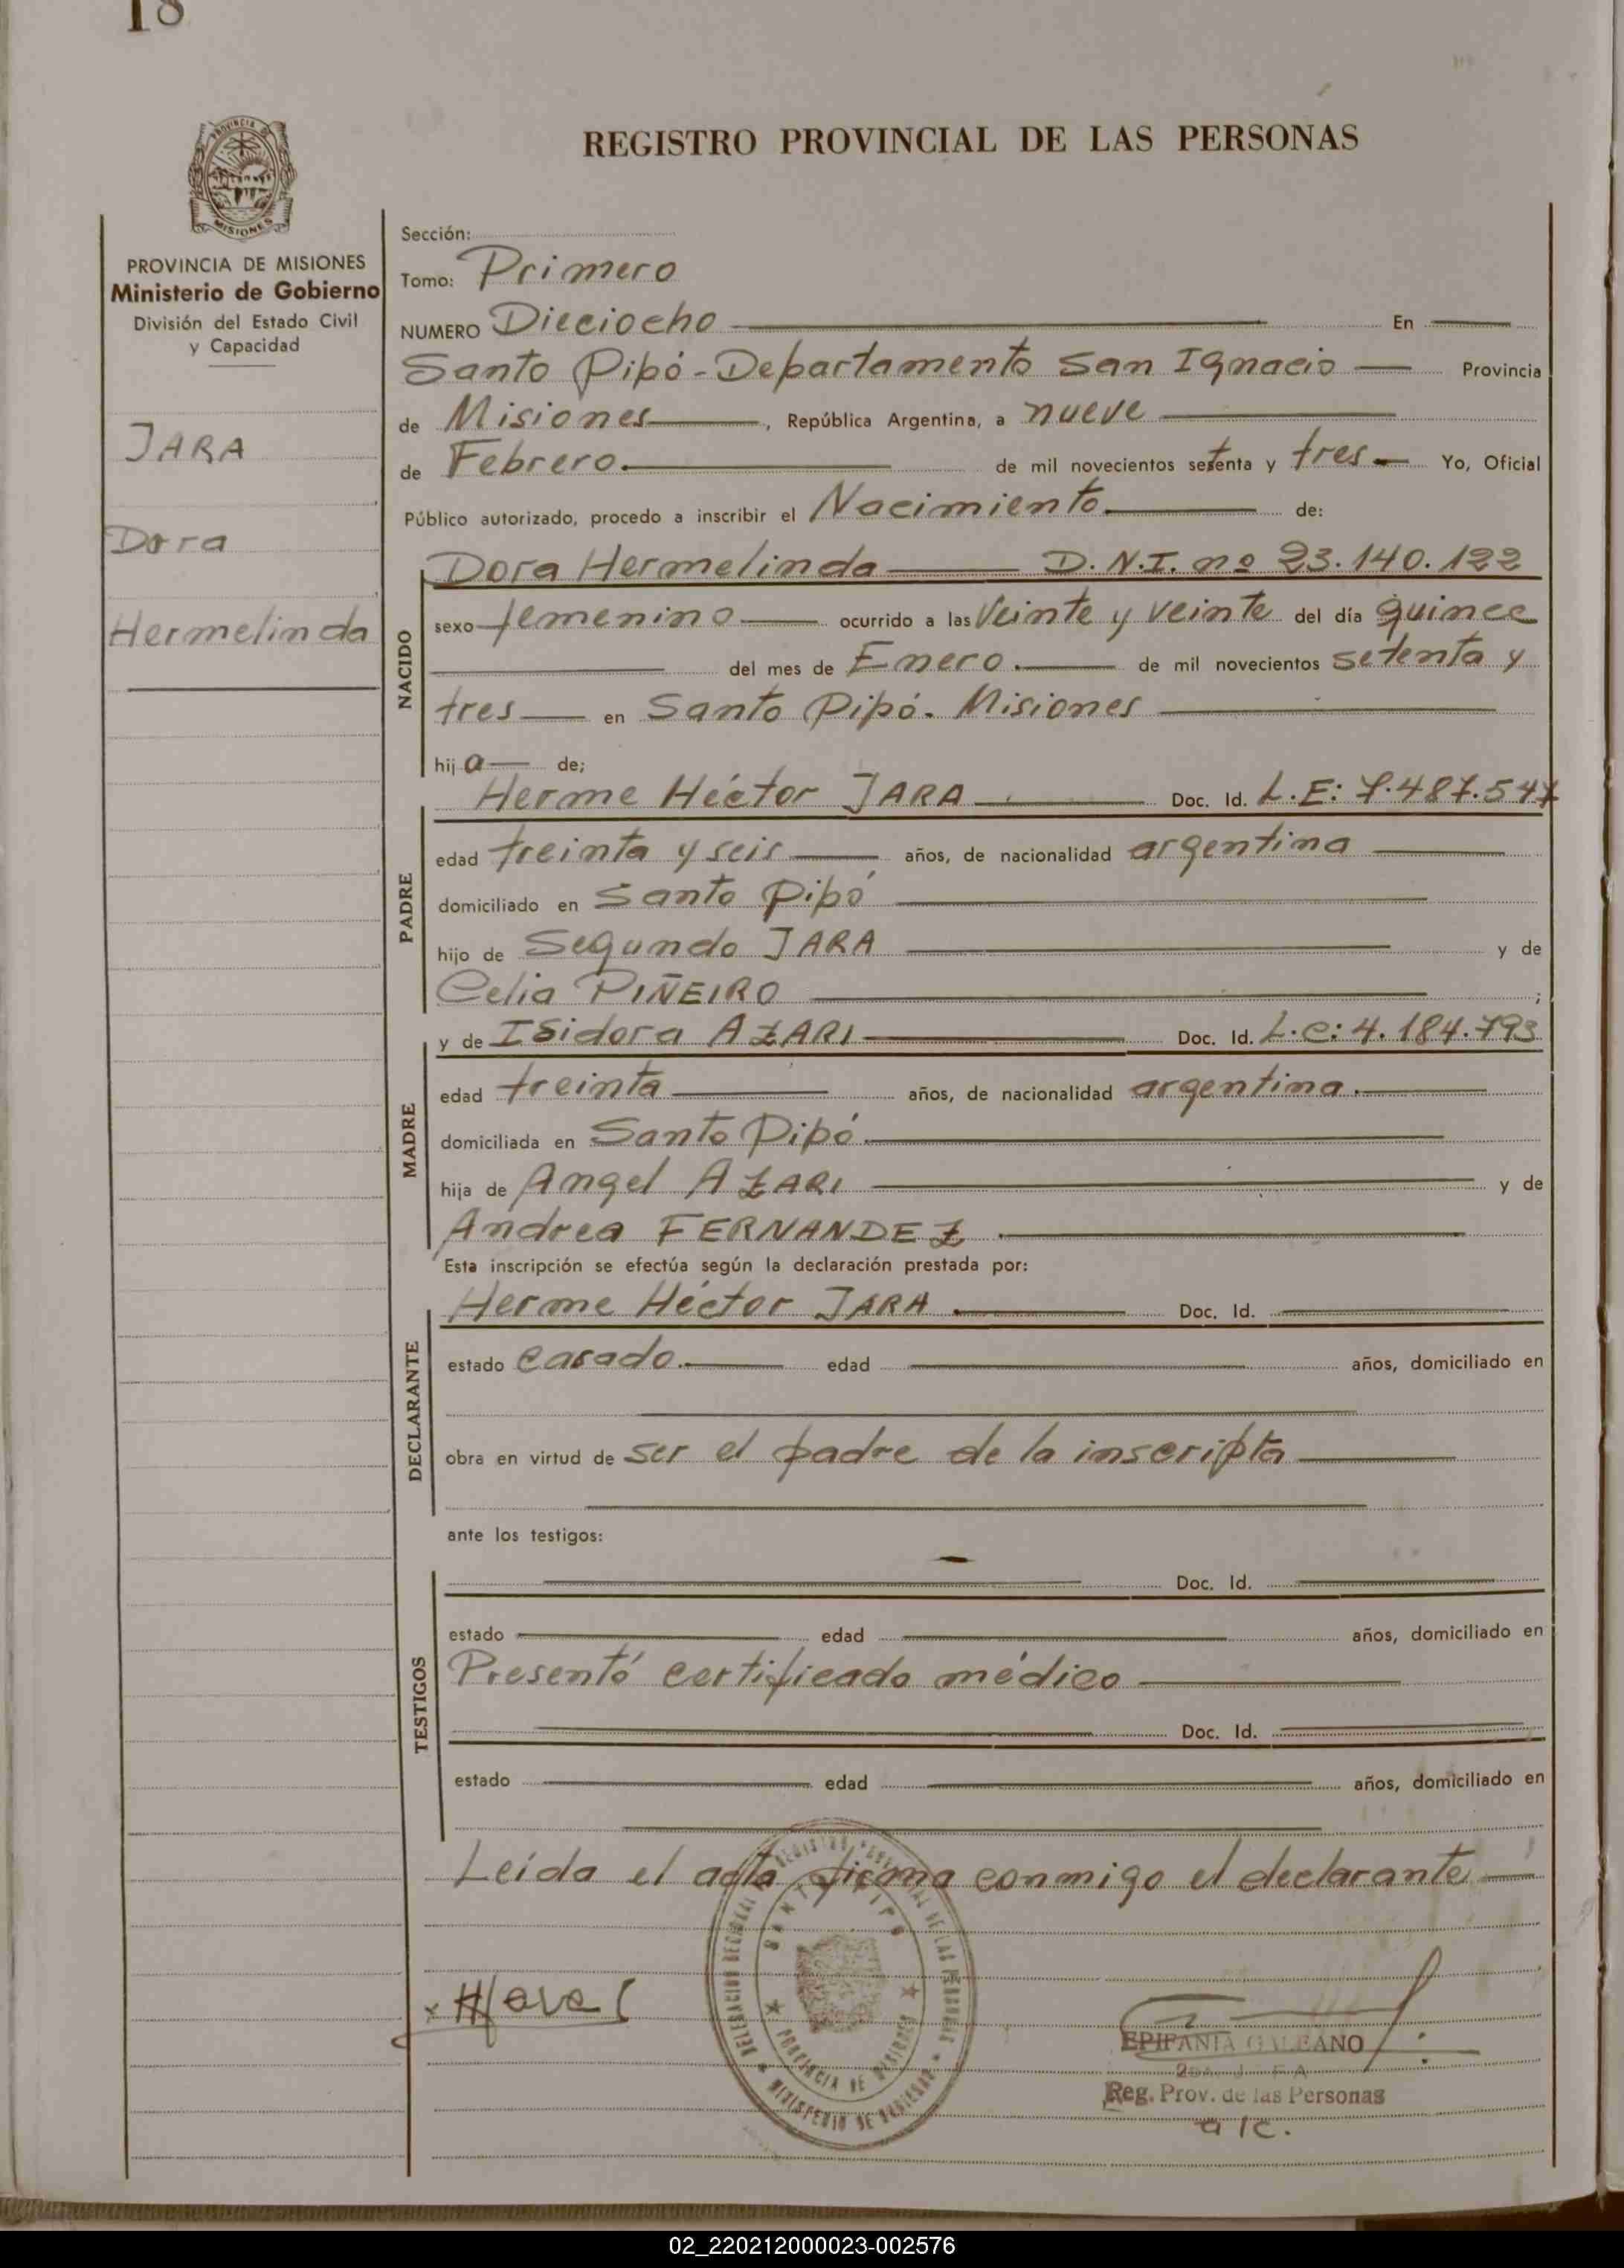 18
REGISTRO PROVINCIAL DE LAS PERSONAS
PROVINCIA DE MISIONES
Ministerio de Gobierno
División del Estado Civil
y Capacidad
JARA
Dora
Hermelinda
Sección:
Tomo: Primero
NUMERO Dieciocho En
Santo Pipó - Departamento San Ignacio Provincia
de Misiones, República Argentina, a nueve
de Febrero. de mil novecientos setenta y tres Yo, Oficial
Público autorizado, procedo a inscribir el Nacimiento. de:
NACIDO
Dora Hermelinda D.N.I. nº 23.140.122
sexo femenino ocurrido a las Veinte y veinte del día quince
del mes de Enero. de mil novecientos setenta y
tres en Santo Pipó. Misiones
hij a de;
PADRE
Herme Héctor JARA Doc. Id. L.E: 7.487.547
edad treinta y seis años, de nacionalidad argentina
domiciliado en Santo Pipó
hijo de Segundo JARA y de
Celia PIÑEIRO ;
MADRE
y de Isidora AZARI Doc. Id. L.C: 4.184.793
edad treinta años, de nacionalidad argentina.
domiciliada en Santo Pipó.
hija de Angel AZARI y de
Andrea FERNANDEZ
Esta inscripción se efectúa según la declaración prestada por:
DECLARANTE
Herme Héctor JARA Doc. Id.
estado casado. edad años, domiciliado en
obra en virtud de ser el padre de la inscripta
ante los testigos:
TESTIGOS
Doc. Id.
estado edad años, domiciliado en
Presentó certificado médico
Doc. Id.
estado edad años, domiciliado en
Leída el acta firma conmigo el declarante
EPIFANIA GALEANO
Reg. Prov. de las Personas
a/c.
02_220212000023-002576